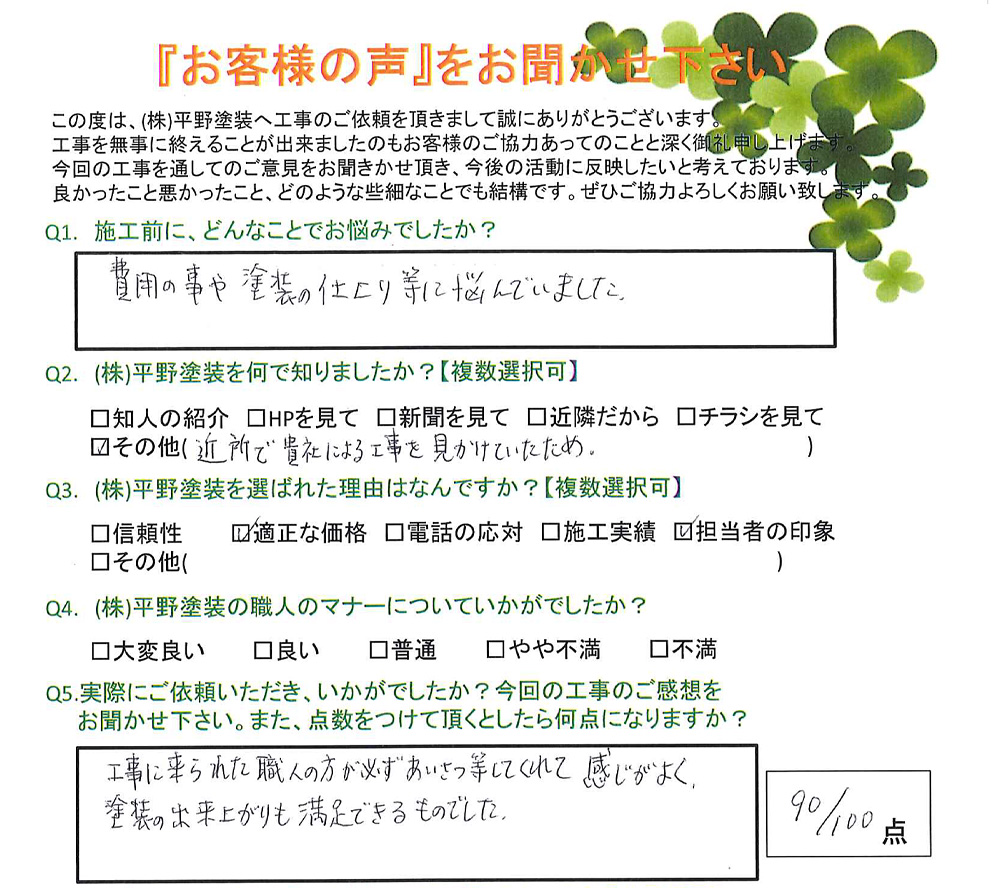 『お客様の声』をお聞かせ下さい
この度は、(株)平野塗装へ工事のご依頼を頂きまして誠にありがとうございます。
工事を無事に終えることが出来ましたのもお客様のご協力あってのことと深く御礼申し上げます。
今回の工事を通してのご意見をお聞きかせ頂き、今後の活動に反映したいと考えております。
良かったこと悪かったこと、どのような些細なことでも結構です。ぜひご協力よろしくお願い致します。
Q1. 施工前に、どんなことでお悩みでしたか？
費用の事や塗装の仕上り等に悩んでいました。
Q2. (株)平野塗装を何で知りましたか？【複数選択可】
□知人の紹介 □HPを見て □新聞を見て □近隣だから □チラシを見て
☑その他( 近所で貴社による工事を見かけていたため。 )
Q3. (株)平野塗装を選ばれた理由はなんですか？【複数選択可】
□信頼性 ☑適正な価格 □電話の応対 □施工実績 ☑担当者の印象
□その他( )
Q4. (株)平野塗装の職人のマナーについていかがでしたか？
□大変良い □良い □普通 □やや不満 □不満
Q5.実際にご依頼いただき、いかがでしたか？今回の工事のご感想を
お聞かせ下さい。また、点数をつけて頂くとしたら何点になりますか？
工事に来られた職人の方が必ずあいさつ等してくれて感じがよく、
塗装の出来上がりも満足できるものでした。
90/100 点